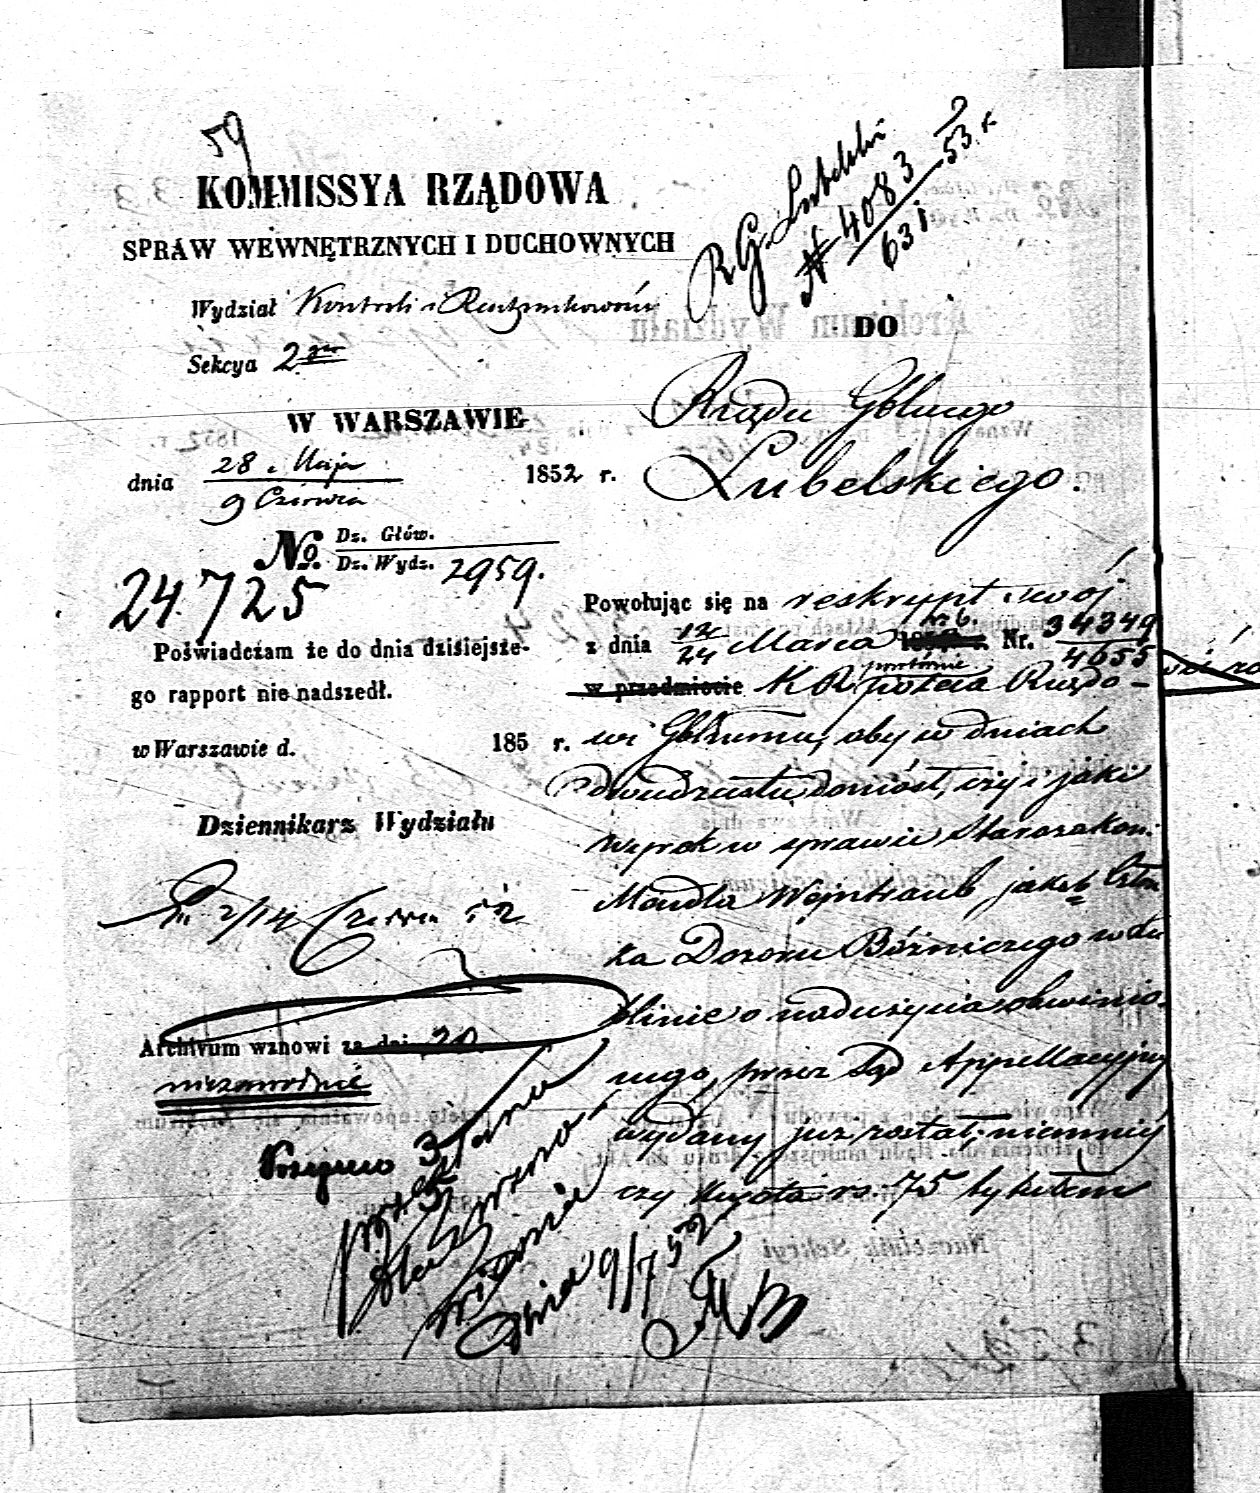 59
KOMMISSYA RZĄDOWA
SPRAW WEWNĘTRZNYCH I DUCHOWNYCH
Wydział Kontroli i Rachunkowości
Sekcya 2
W WARSZAWIE
dnia 28 Maja 1852 r.
9 Czerwca
No. Dz. Głów.
Dz. Wydz. 2959.
24,725
Poświadczam że do dnia dzisiejsze-
go rapport nie nadszedł.
w Warszawie d. 185 r.
Dziennikarz Wydziału
2/14 Czerwca 52
Archivum wznowi za dni 20
niezawodnie
R G. Lubelski
N 4083
631
53 r.
DO
Rządu Gblnego
Lubelskiego.
Powołując się na reskrypt swój
z dnia 12/24 Marca r. b. Nr. 34349
4655
w przedmiocie K R powtórnie poleca Rządo-
wi Gblnemu, aby w dniach
dwudziestu doniósł, czy i jaki
wyrok w sprawie Starozakon:
Mendla Wajntraub jako Człon
ka Dozoru Bóźniczego w Lu
blinie o nadużycia obwinio-
nego, przez Sąd Appellacyjny
wydany już został; niemniej
czy kwota rs. 75 tytułem
dnia 9/7 52